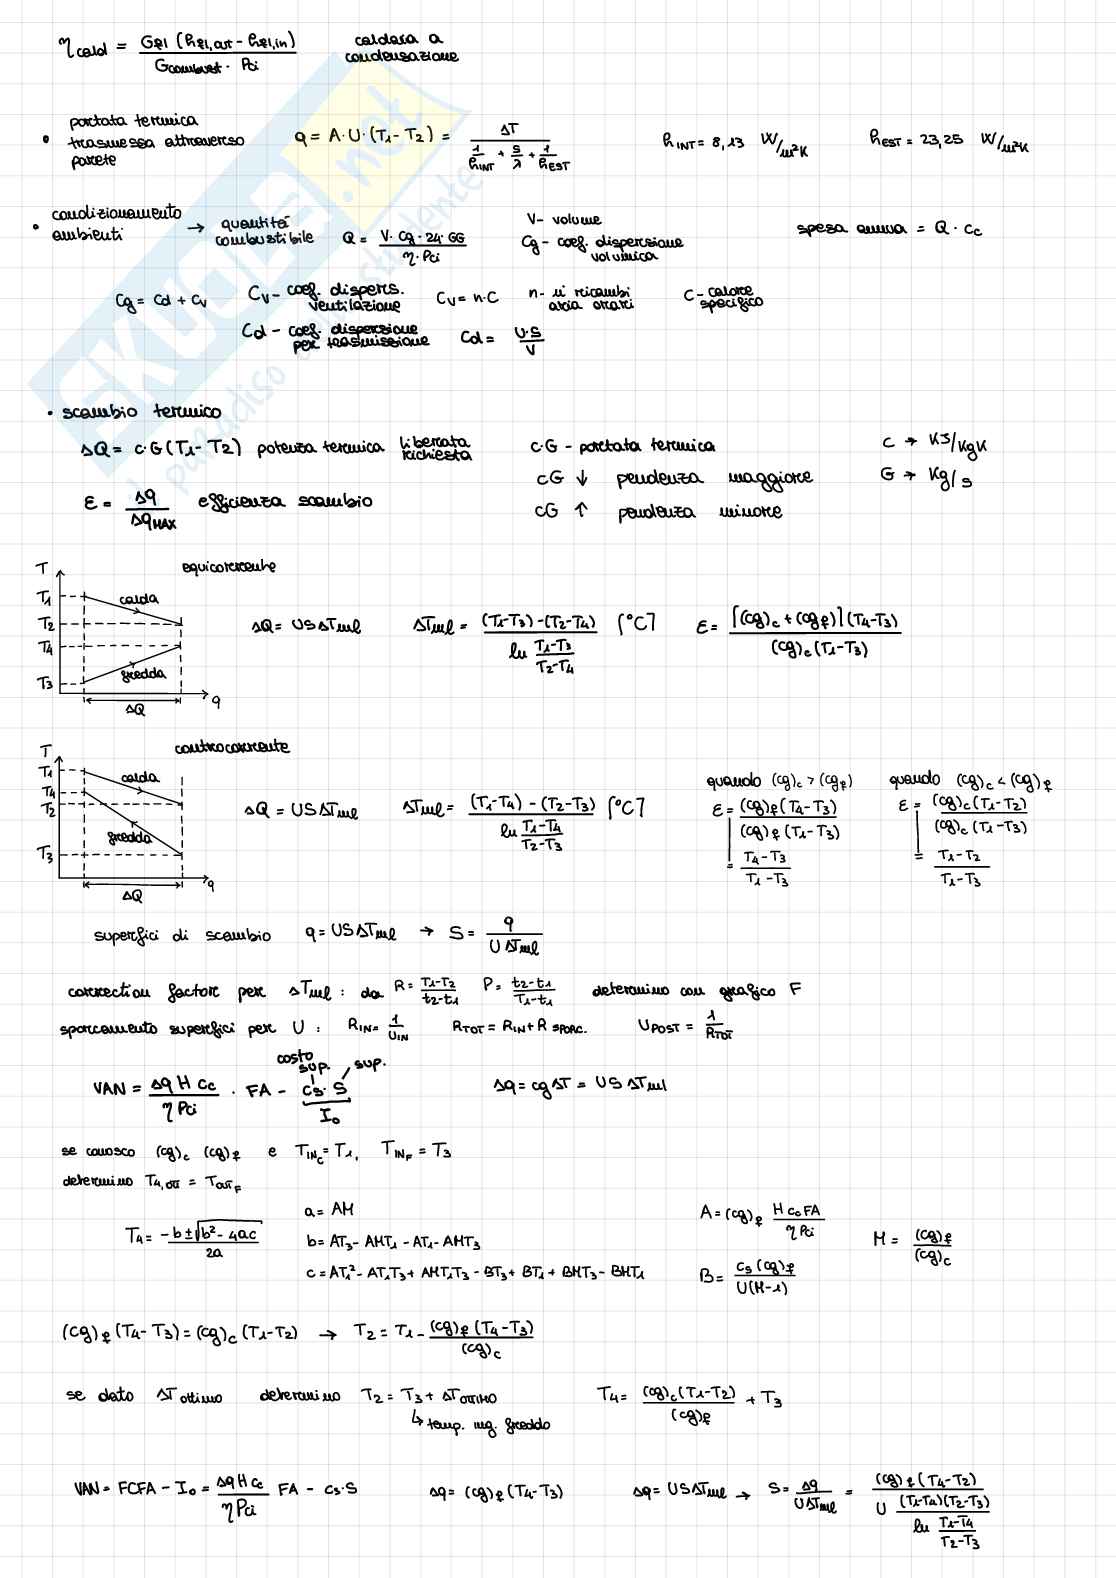 η cald = Gfl (hfl,out - hfl,in) / Gcombust · Pci   caldaia a condensazione
• portata termica trasmessa attraverso parete   q = A·U·(T1-T2) = ΔT / (1/hINT + s/λ + 1/hEST)   hINT = 8,13 W/m²K   hEST = 23,25 W/m²K
• condizionamento ambienti → quantità combustibile   Q = V·Cg·24·GG / η·Pci   V- volume   spesa annua = Q·cc
Cg - coef. dispersione volumica
Cg = Cd + Cv   Cv - coef. dispers. ventilazione   Cv = n·C   n- n° ricambi aria orari   C- calore specifico
Cd - coef. dispersione per trasmissione   Cd = U·S / V
SKUOLA.net
il paradiso dello studente
• scambio termico
ΔQ = c·G(T1-T2) potenza termica liberata richiesta   c·G - portata termica   c → KJ/KgK
cG ↓ pendenza maggiore   G → Kg/s
ε = Δq / ΔqMAX efficienza scambio   cG ↑ pendenza minore
equicorrente
T T1 T2 T4 T3 calda fredda ΔQ q
ΔQ = USΔTml   ΔTml = (T1-T3)-(T2-T4) / ln (T1-T3 / T2-T4) [°C]   ε = [(cg)c + (cg)f](T4-T3) / (cg)c(T1-T3)
controcorrente
T T1 T4 T2 T3 calda fredda ΔQ q
ΔQ = USΔTml   ΔTml = (T1-T4) - (T2-T3) / ln (T1-T4 / T2-T3) [°C]
quando (cg)c > (cgf)   ε = (cg)f(T4-T3) / (cg)f(T1-T3) = T4-T3 / T1-T3
quando (cg)c < (cg)f   ε = (cg)c(T1-T2) / (cg)c(T1-T3) = T1-T2 / T1-T3
superfici di scambio   q = USΔTml → S = q / UΔTml
correction factor per ΔTml: da R = T1-T2 / t2-t1   P = t2-t1 / T1-t1   determino con grafico F
sporcamento superfici per U:   RIN = 1 / UIN   RTOT = RIN + R SPORC.   UPOST = 1 / RTOT
VAN = Δq H cc / η Pci · FA - cs·S   costo sup.   sup.   I0   Δq = cgΔT = USΔTml
se conosco (cg)c (cg)f e TINC = T1, TINF = T3
determino T4,ott = ToutF
T4 = -b ± √b² - 4ac / 2a
a = AM
b = AT3 - AMT1 - AT1 - AMT3
c = AT1² - AT1T3 + AMT1T3 - BT3 + BT1 + BMT3 - BMT1
A = (cg)f H cc FA / η Pci
B = cs (cg)f / U(M-1)
M = (cg)f / (cg)c
(cg)f (T4-T3) = (cg)c (T1-T2) → T2 = T1 - (cg)f (T4-T3) / (cg)c
se dato ΔTottimo determino T2 = T3 + ΔTOTTIMO   T4 = (cg)c(T1-T2) / (cg)f + T3
↳ temp. ing. freddo
VAN = FCFA - I0 = Δq H cc / η Pci FA - cs·S   Δq = (cg)f (T4-T3)   Δq = USΔTml → S = Δq / UΔTml = (cg)f (T4-T2) / U (T1-T4)(T2-T3) / ln (T1-T4 / T2-T3)